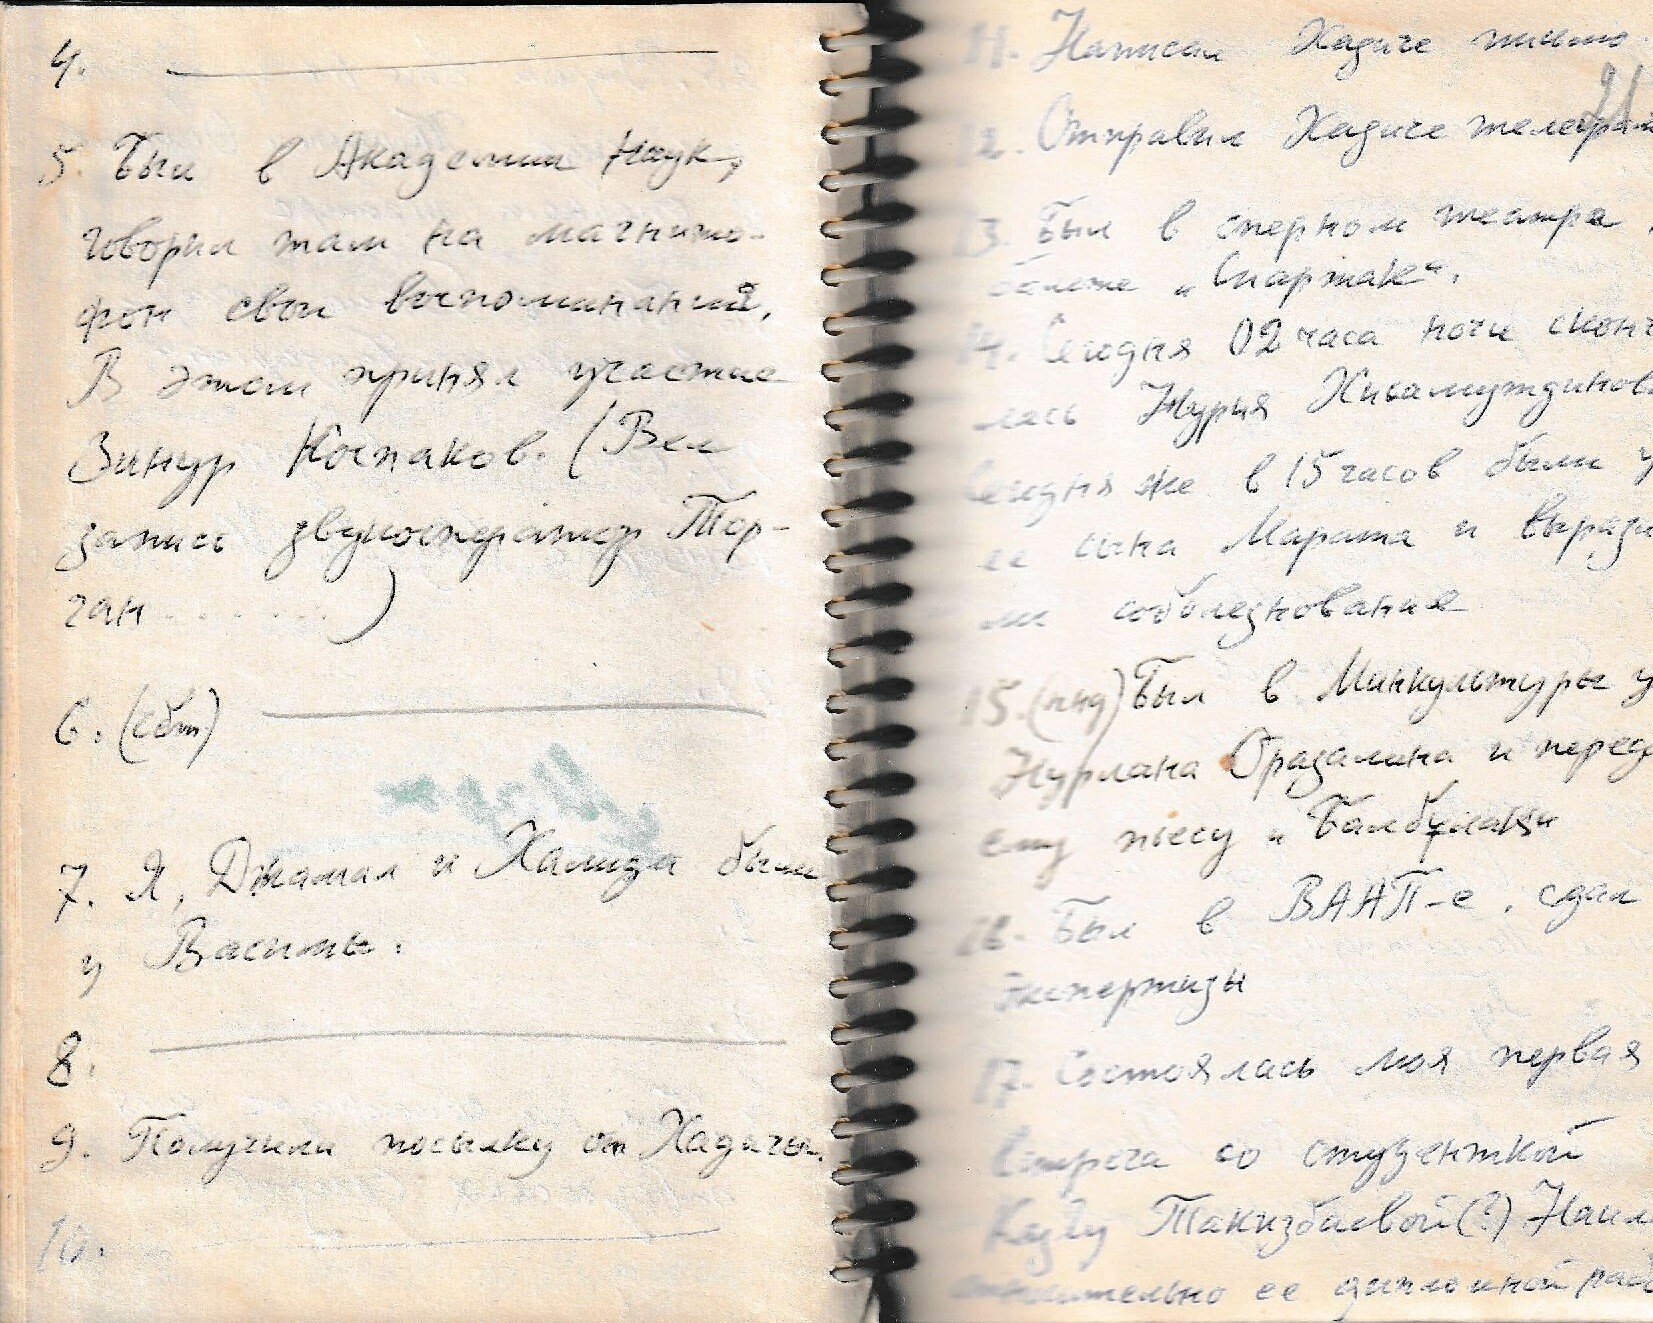 4.
5. Был в Академии Наук,
говорил там на магнито-
фон свои воспоминаний.
В этом принял участие
Зинур Коспаков. (Вел
запись звукооператор Тор-
ган . . . . . . . )
6. (сбт)
7. Я, Джамал и Халида были
у Васимы.
8.
9. Получили посылку от Хадичи.
10.
11. Написал Хадиче письмо.
12. Отправил Хадиче телеграм
13. Был в оперном театре,
балете „Спартак“.
14. Сегодня 02 часа ночи сконч
лась Нурия Хисамутдинов
Сегодня же в 15 часов были у
ее сына Марата и вырази
ли соболезнования
15. (пнд) Был в Минкультуры у
Нурлана Оразалина и перед
ему пьесу „Балбулак“
16. Был в ВААП-е, сдал
экспертизы
17. Состоялась моя первая
встреча со студенткой
КазГу Такизбаевой(?) Наил
относительно ее дипломной раб